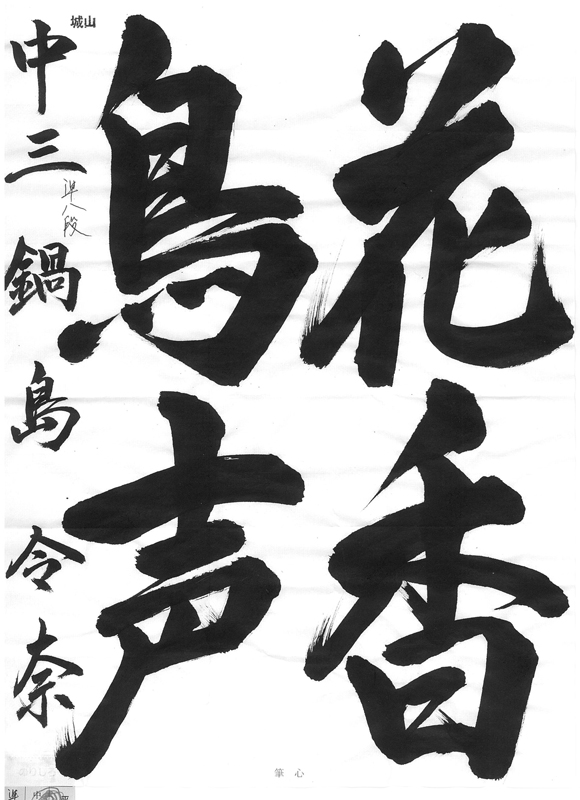 花香
鳥声
中三 鍋島令奈
準八段
城山
筆心